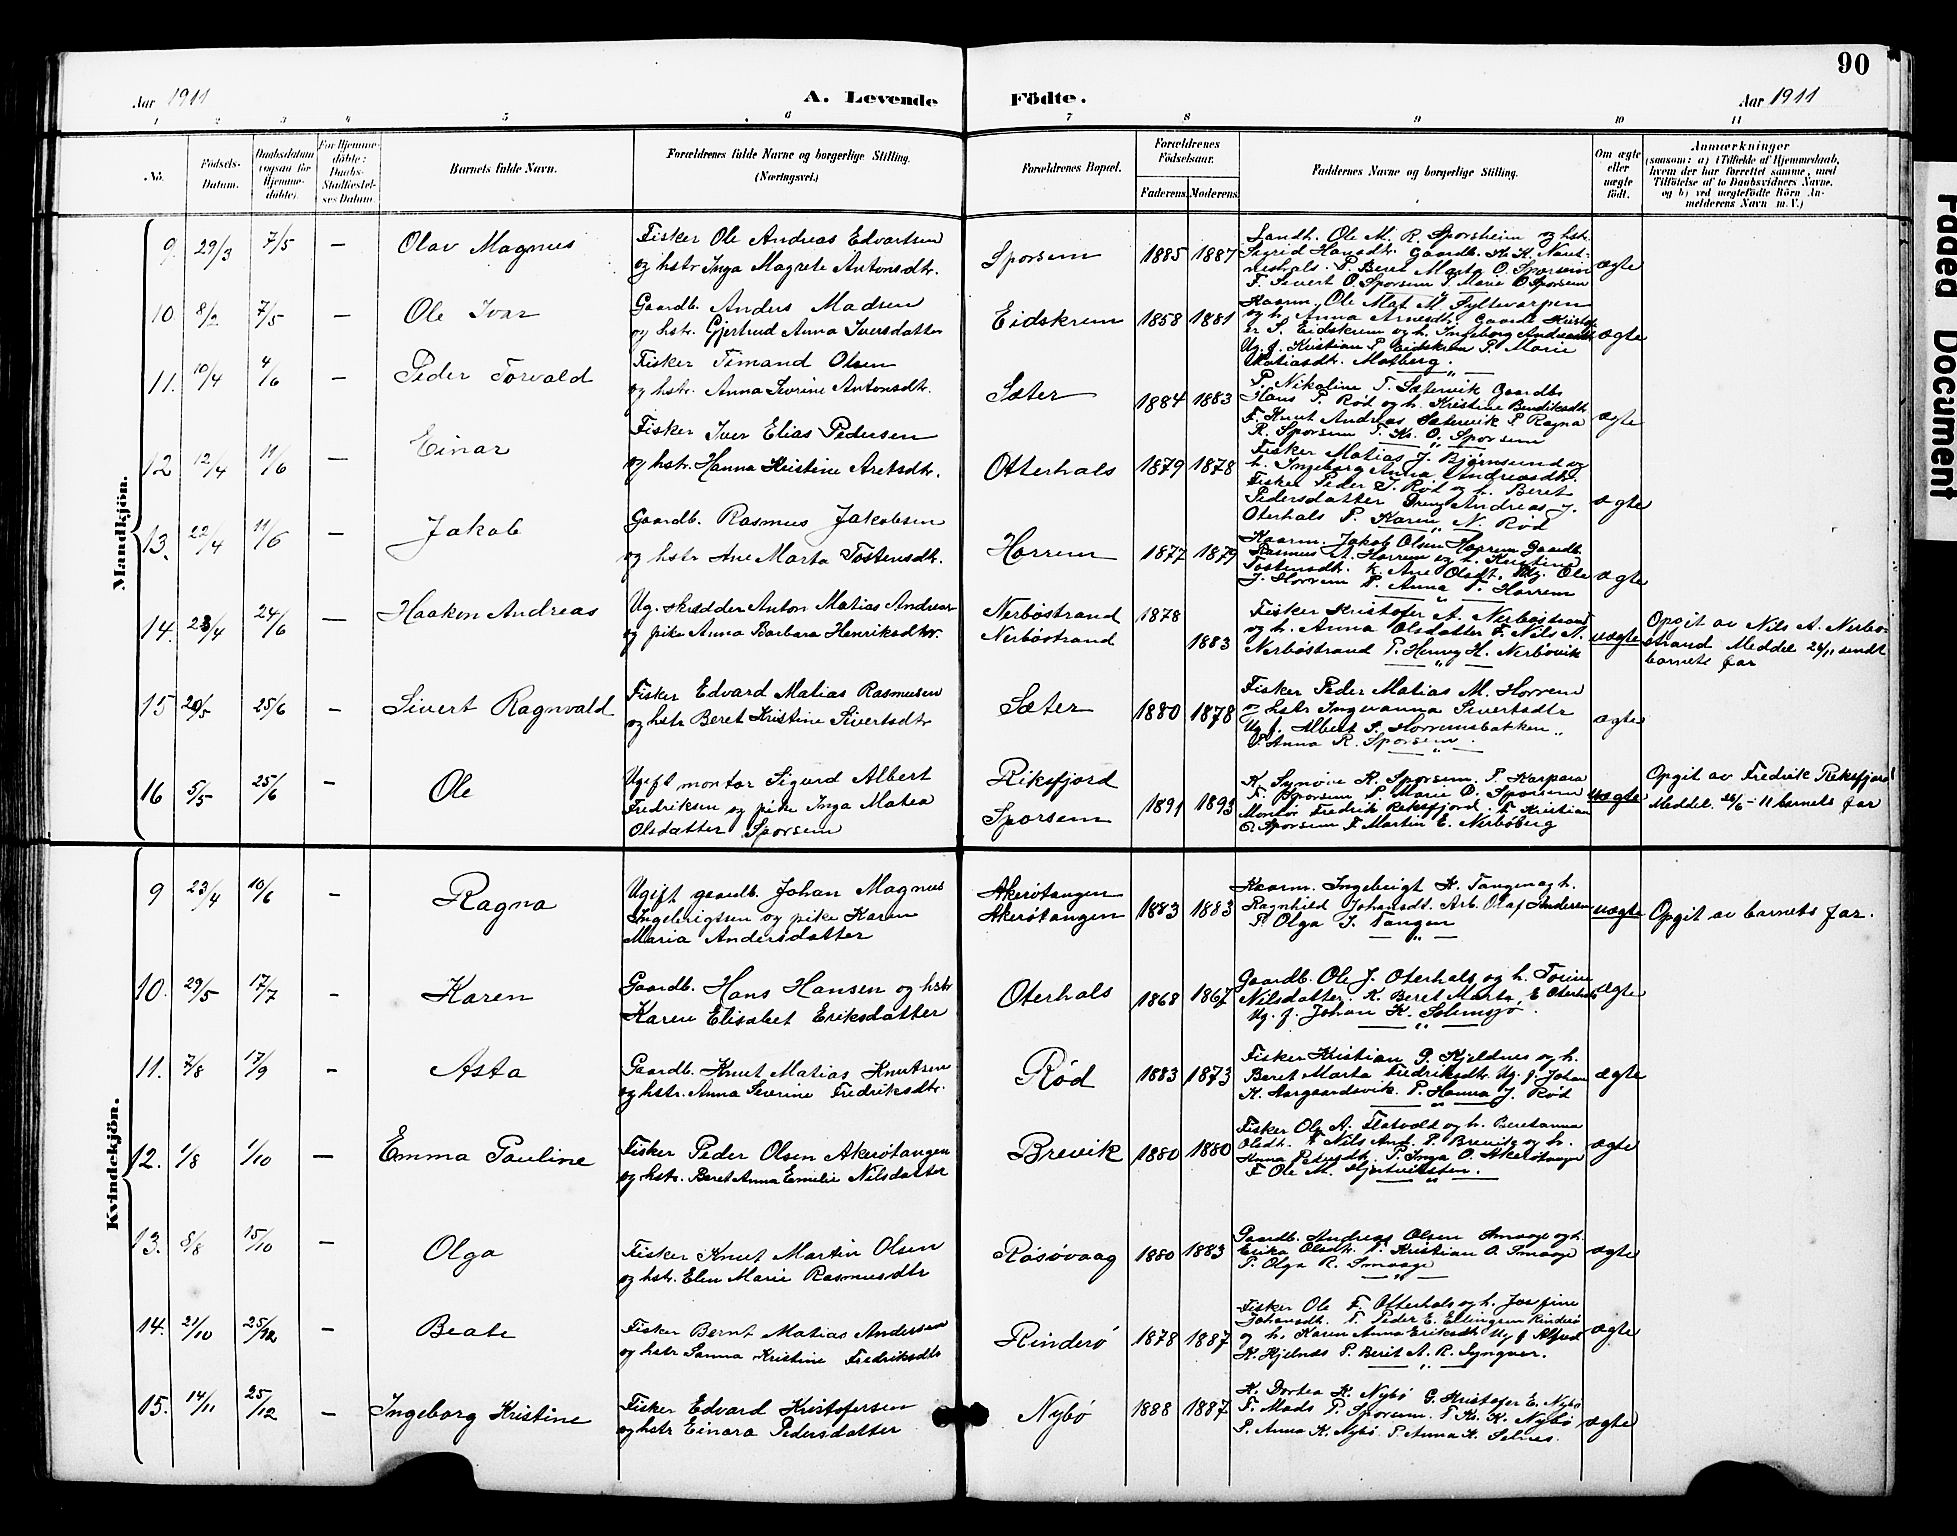 90
Aar 1911
A. Levende Födte.
Aar 1911
1 2 3 4 5 6 7 8 9 10 11
No.
Födsels-
Datum.
Daabsdatum
(ogsaa for
Hjemme-
døbte).
For Hjemme-
døbte:
Daabs-
Stadfæstel-
ses Datum.
Barnets fulde Navn.
Forældrenes fulde Navne og borgerlige Stilling.
(Næringsvei.)
Forældrenes Bopæl.
Forældrenes
Fødselsaar.
Faderens.
Moderens.
Faddernes Navne og borgerlige Stilling.
Om ægte
eller
uægte
født.
Anmærkninger
(saasom: a) i Tilfælde af Hjemmedaab,
hvem der har forrettet samme, med
Tilføielse af to Daabsvidners Navne,
og b) ved uægtefødte Börn An-
melderens Navn m. V.)
Mandkjön.
9. 29/3 7/5 — Olav Magnus
Fisker Ole Andreas Edvartsen
og hstr Inga Magrete Antonsdtr.
Sporsem 1885 1887
Landh. Ole M. R. Sporsheim og hstr.
Sigrid Hansdtr. Gaardb. K. K.
P. Beret Marta O. Sporsem
F. Sivert O. Sporsem P. Marie O. Sporsem
ægte
10 8/2 7/5 — Ole Ivar
Gaardb. Anders Madsen
og hstr. Gjertrud Anna Iversdatter
Eidskrem 1858 1881
Kaarm. Ole Mat. M. Syltevarpen
og h. Anna Arnesdtr. Gaardb. Kristof-
er S. Eidskrem og h. Ingeborg Andreasdtr
Ug. f. Kristian P. Eidskrem P. Marie
Matiasdtr. Malberg
ægte
11. 10/4 4/6 — Peder Torvald
Fisker Timand Olsen
og hstr. Anna Sevrine Antonsdtr.
Sæter 1884 1883
P. Nikoline T. Sætervik Gaardb.
Hans P. Rød og h. Kristine Bendiksdtr
F. Knut Andreas Sætervik P. Ragna
R. Sporsem F. Kr. O. Sporsem
ægte
12 12/4 11/6 — Einar
Fisker Iver Elias Pedersen
og hstr. Hanna Kristine Aretsdtr.
Otterhals 1879 1878
Fisker Matias J. Bjørnsund og
h. Ingeborg Anna Andreasdtr.
Fisker Peder S. Rød og h. Beret
Pedersdatter Dreng Andreas J.
Oterhals P. Karen N. Rød
ægte
13. 22/4 11/6 — Jakob
Gaardb. Rasmus Jakobsen
og hstr Ane Marta Tostensdtr.
Horrem 1877 1879
Kaarm. Jakob Olsen Horrem Gaardb.
Rasmus A. Horrem og h. Kristina
Tostensdtr. K. Ane Olsdt. Ug. Ole
J. Horrem P. Anna T. Horrem
ægte
14. 23/4 24/6 — Haakon Andreas
Ug. skrædder Anton Matias Andreas-
og pike Anna Barbara Henriksdtr.
Nerbøstrand 1878
Nerbøstrand 1883
Fisker Kristofer A. Nerbøstrand
og h. Anna Olsdatter F. Nils A.
Nerbøstrand P. Henny H. Nerbøvik
uægte
Opgit av Nils A. Nerbø-
strand Meddel. 26/11 sendt
barnets far
15 20/5 25/6 — Sivert Ragnvald
Fisker Edvard Matias Rasmusen
og hstr Beret Kristine Sivertsdtr
Sæter 1880 1878
Fisker Peder Matias M. Horrem
og hstr Ingvanna Sivertsdtr
Ug. f. Albert S. Horremsbakken
P. Anna R. Sporsem
ægte
16 5/5 25/6 — Ole
Ugift montør Sigurd Albert
Fredriksen og pike Inga Matea
Olsdatter Sporsem
Riksfjord
Sporsem 1891 1893
K. Synøve K. Sporsem. P. Kaspara
F. Sporsem P. Marie O. Sporsem
Montør Fredrik Reksfjord. F. Kristian
O. Sporsem F. Martin E. Nerbøberg
uægte
Opgit av Fredrik Reksfjord
Meddel. 26/6-11 barnets far
Kvindekjön.
9 23/4 10/6 — Ragna
Ugift gaardb. Johan Magnus
Ingebrigtsen og pike Karen
Maria Andersdatter
Akerøtangen
Akerøtangen 1883 1883
Kaarm. Ingebrigt K. Tangen og h.
Ragnhild Johansdt. Arb. Olaf Andersen
P. Olga J. Tangen
uægte
Opgit av barnets far.
10. 29/5 17/7 - Karen
Gaardb. Hans Hansen og hstr
Karen Elisabet Eriksdatter
Oterhals 1868 1867
Gaardb. Ole J. Oterhals og h. Torine
Nilsdatter. K. Beret Marta E. Oterhals
Ug. f. Johan K. Solemsjø.
ægte
11. 7/8 17/9 - Asta
Gaardb. Knut Matias Knutsen
og hstr. Anna Severine Fredriksdtr.
Rød 1883 1873
Fisker Kristian P. Kjeldnes og h.
Beret Marta Fredriksdtr. Ug. f. Johan
K. Aargaardsvik. P. Hanna J. Rød
ægte
12. 1/8 1/10 — Emma Pauline
Fisker Peder Olsen Akerøtangen
og hstr. Beret Anna Emilie Nilsdatter
Brevik 1880 1880
Fisker Ole A. Flatvold og h. Beretanna
Olsdtr. F. Nils And. P. Brevik og h.
Anna Petersdtr. P. Inga O. Akerøtangen
F. Ole M. Hjertviksten.
ægte
13. 8/8 15/10 — Olga
Fisker Knut Martin Olsen
og hstr. Elen Marie Rasmusdtr
Røsøvaag 1880 1883
Gaardb. Andreas Olsen Smaage og h.
Erika Olsdtr. F. Kristian O. Smaage
P. Olga R. Smaage
ægte
14. 21/10 25/12 — Beate
Fisker Bernt Matias Andersen
og hstr Sanna Kristine Fredriksdtr
Rinderø 1878 1887
Fisker Ole F. Otterhals og h. Josefine
Johansdt. F. Peder E. Ellingsen Rinderø
og h. Karen Anna Eriksdtr Ug. f. Alfred
K. Kjelnes P. Berit A. R. Syngver.
ægte
15. 14/11 25/12 — Ingeborg Kristine
Fisker Edvard Kristofersen
og hstr Einara Pedersdatter
Nybø 1888 1887
K. Dortea K. Nybø G. Kristofer E. Nybø
F. Mads P. Sporsem. F. Kr. K. Nybø
P. Anna K. Nybø. P. Anna K. Selnes.
ægte
Faded Document